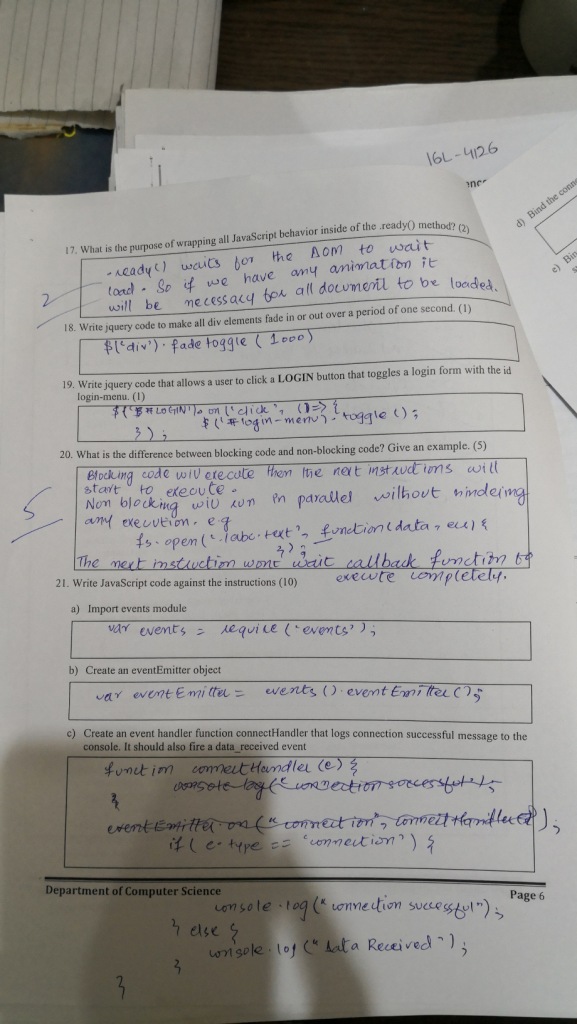 16L-4126
d) Bind the conn
e) Bin
17. What is the purpose of wrapping all JavaScript behavior inside of the .ready() method? (2)
.ready() waits for the DOM to wait
load. So if we have any animation it
will be necessary for all document to be loaded.
2
18. Write jquery code to make all div elements fade in or out over a period of one second. (1)
$('div'). fade toggle (1000)
19. Write jquery code that allows a user to click a LOGIN button that toggles a login form with the id
login-menu. (1)
$('#LOGIN').on('click', ()=> {
$('#login-menu').toggle();
});
20. What is the difference between blocking code and non-blocking code? Give an example. (5)
Blocking code will execute then the next instructions will
start to execute.
Non blocking will run in parallel without hindeimg
any execution. e.g
fs.open('./abc.text', function(data, err) {
});
The next instruction wont wait callback function to
execute completely.
5
21. Write JavaScript code against the instructions (10)
a) Import events module
var events = require('events');
b) Create an eventEmitter object
var eventEmitter = events().eventEmitter();
c) Create an event handler function connectHandler that logs connection successful message to the
console. It should also fire a data_received event
function connectHandler (e) {
console.log("connection successful");
}
eventEmitter.on("connection", connectHandler);
if (e.type == "connection") {
Department of Computer Science
Page 6
console.log("connection successful");
} else {
console.log("Data Received");
}
}